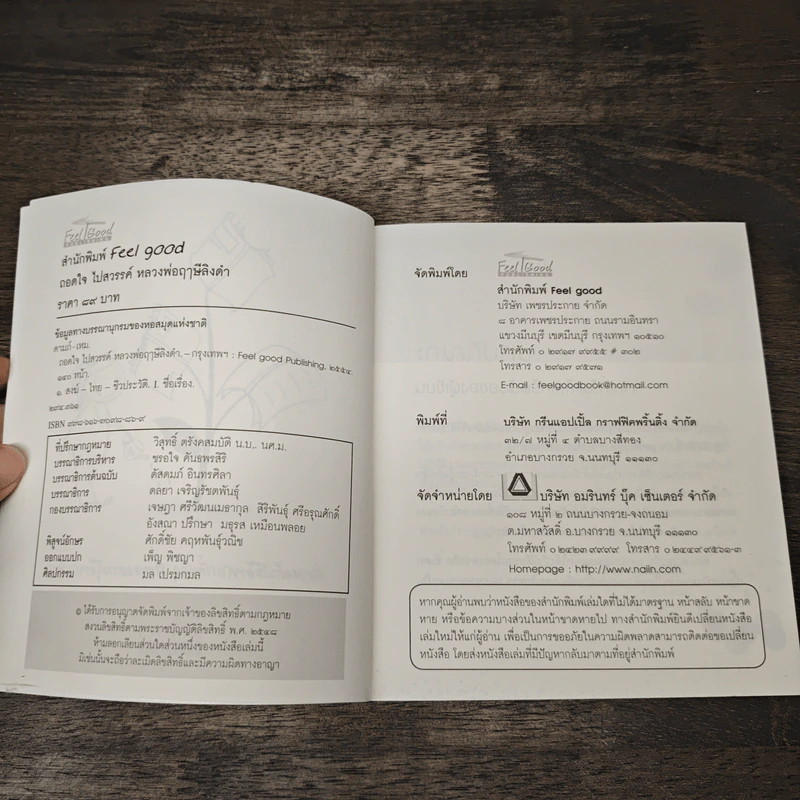 Feel Good
PUBLISHING
สำนักพิมพ์ Feel good
ถอดใจ ไปสวรรค์ หลวงพ่อฤาษีลิงดำ
ราคา ๘๙ บาท
ข้อมูลทางบรรณานุกรมของหอสมุดแห่งชาติ
ดามภ์-เหม.
ถอดใจ ไปสวรรค์ หลวงพ่อฤาษีลิงดำ. – กรุงเทพฯ : Feel good Publishing, ๒๕๕๔.
๑๔๐ หน้า.
๑. สงฆ์ – ไทย – ชีวประวัติ. I. ชื่อเรื่อง.
๒๙๔.๓๖๑
ISBN ๙๗๘-๖๑๖-๓๐๙๘-๘๖-๙
ที่ปรึกษากฎหมาย วิสุทธิ์ ตรังคสมบัติ น.บ., นศ.ม.
บรรณาธิการบริหาร ชรอใจ คันธพรสิริ
บรรณาธิการต้นฉบับ ดัสดมภ์ อินทรศิลา
บรรณาธิการ ดลยา เจริญรัชตพันธุ์
กองบรรณาธิการ เจษฎา ศรีวัฒนเมธากุล สิริพันธุ์ ศรีอรุณศักดิ์
อังสณา ปรึกษา มธุรส เหมือนพลอย
พิสูจน์อักษร ศักดิ์ชัย คฤหพันธุ์วณิช
ออกแบบปก เพ็ญ พิชญา
ศิลปกรรม มล เปรมกมล
© ได้รับการอนุญาตจัดพิมพ์จากเจ้าของลิขสิทธิ์ตามกฎหมาย
สงวนลิขสิทธิ์ตามพระราชบัญญัติลิขสิทธิ์ พ.ศ. ๒๕๔๘
ห้ามลอกเลียนส่วนใดส่วนหนึ่งของหนังสือเล่มนี้
มิเช่นนั้นจะถือว่าละเมิดลิขสิทธิ์และมีความผิดทางอาญา
จัดพิมพ์โดย Feel Good
PUBLISHING
สำนักพิมพ์ Feel good
บริษัท เพชรประกาย จำกัด
๘ อาคารเพชรประกาย ถนนรามอินทรา
แขวงมีนบุรี เขตมีนบุรี กรุงเทพฯ ๑๐๕๑๐
โทรศัพท์ ๐ ๒๙๑๗ ๙๙๕๕ # ๓๐๒
โทรสาร ๐ ๒๙๑๗ ๙๕๗๑
E-mail : feelgoodbook@hotmail.com
พิมพ์ที่ บริษัท กรีนแอปเปิ้ล กราฟฟิคพริ้นติ้ง จำกัด
๓๒/๗ หมู่ที่ ๔ ตำบลบางสีทอง
อำเภอบางกรวย จ.นนทบุรี ๑๑๑๓๐
จัดจำหน่ายโดย บริษัท อมรินทร์ บุ๊ค เซ็นเตอร์ จำกัด
๑๐๘ หมู่ที่ ๒ ถนนบางกรวย-จงถนอม
ต.มหาสวัสดิ์ อ.บางกรวย จ.นนทบุรี ๑๑๑๓๐
โทรศัพท์ ๐ ๒๔๒๓ ๙๙๙๙ โทรสาร ๐ ๒๔๔๙ ๙๕๖๑-๓
Homepage : http://www.naiin.com
หากคุณผู้อ่านพบว่าหนังสือของสำนักพิมพ์เล่มใดที่ไม่ได้มาตรฐาน หน้าสลับ หน้าขาด
หาย หรือข้อความบางส่วนในหน้าขาดหายไป ทางสำนักพิมพ์ยินดีเปลี่ยนหนังสือ
เล่มใหม่ให้แก่ผู้อ่าน เพื่อเป็นการขออภัยในความผิดพลาดสามารถติดต่อขอเปลี่ยน
หนังสือ โดยส่งหนังสือเล่มที่มีปัญหากลับมาตามที่อยู่สำนักพิมพ์